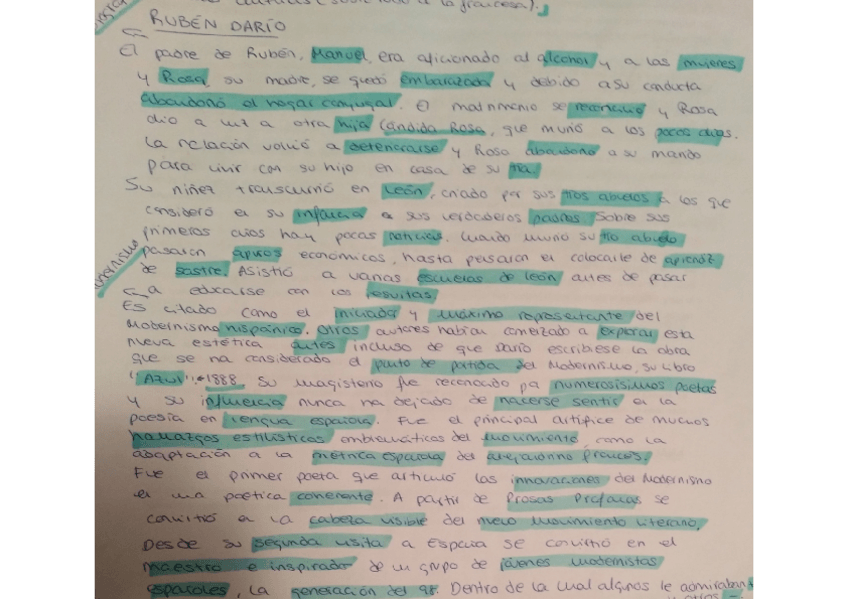 culturales (sobre todo a la francesa).
RUBÉN DARÍO
El padre de Rubén, Manuel, era aficionado al alcohol y a las mujeres
y Rosa, su madre, se quedó embarazada y debido a su conducta
abandonó el hogar conyugal. El matrimonio se reconcilió y Rosa
dio a luz a otra hija Cándida Rosa, que murió a los pocos días.
La relación volvió a deteriorarse y Rosa abandonó a su marido
para vivir con su hijo en casa de su tía.
Su niñez transcurrió en León, criado por sus tíos abuelos a los que
consideró en su infancia a sus verdaderos padres. Sobre sus
primeros años hay pocas noticias. Cuando murió su tío abuelo
pasaron apuros económicos, hasta pensaron el colocarle de aprendiz
de sastre. Asistió a varias escuelas de León antes de pasar
a educarse con los jesuitas
modernismo
Es citado como el iniciador y máximo representante del
Modernismo hispánico. Otros autores habían comenzado a explorar esta
nueva estética antes incluso de que Darío escribiese la obra
que se ha considerado el punto de partida del Modernismo, su libro
"Azul" 1888 Su magisterio fue reconocido por numerosísimos poetas
y su influencia nunca ha dejado de hacerse sentir en la
poesía en lengua española. Fue el principal artífice de muchos
hallazgos estilísticos emblemáticos del movimiento, como la
adaptación a la métrica española del alejandrino francés.
Fue el primer poeta que articuló las innovaciones del Modernismo
en una poética coherente. A partir de Prosas Profanas, se
convirtió en la cabeza visible del nuevo movimiento literario.
Desde su segunda visita a España se convirtió en el
maestro e inspirador de un grupo de jóvenes modernistas
españoles, la generación del 98. Dentro de la cual algunos le admiraban